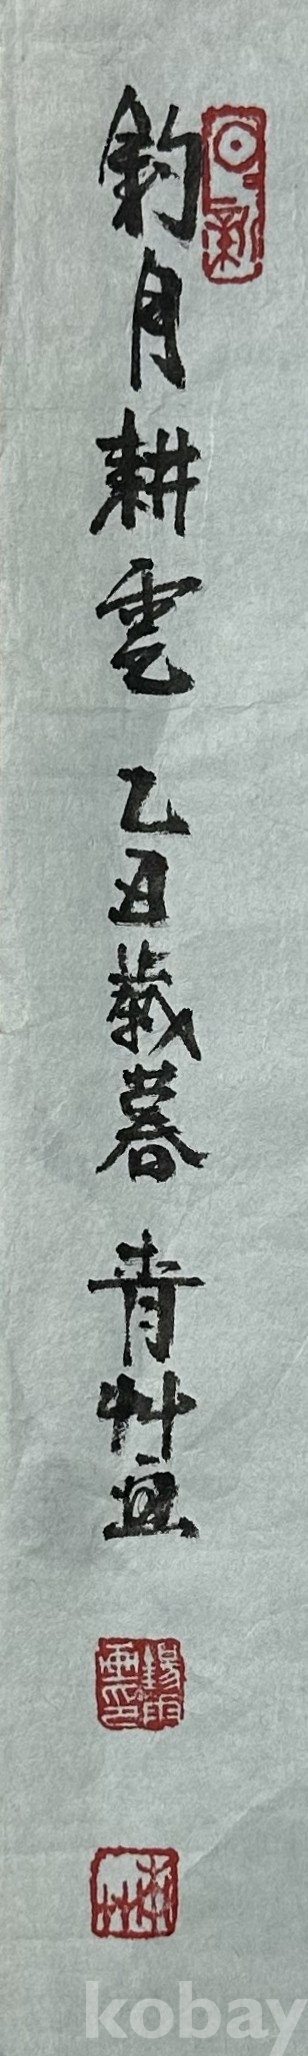 日新
釣月耕雲 乙丑歲暮 青艸
kobay